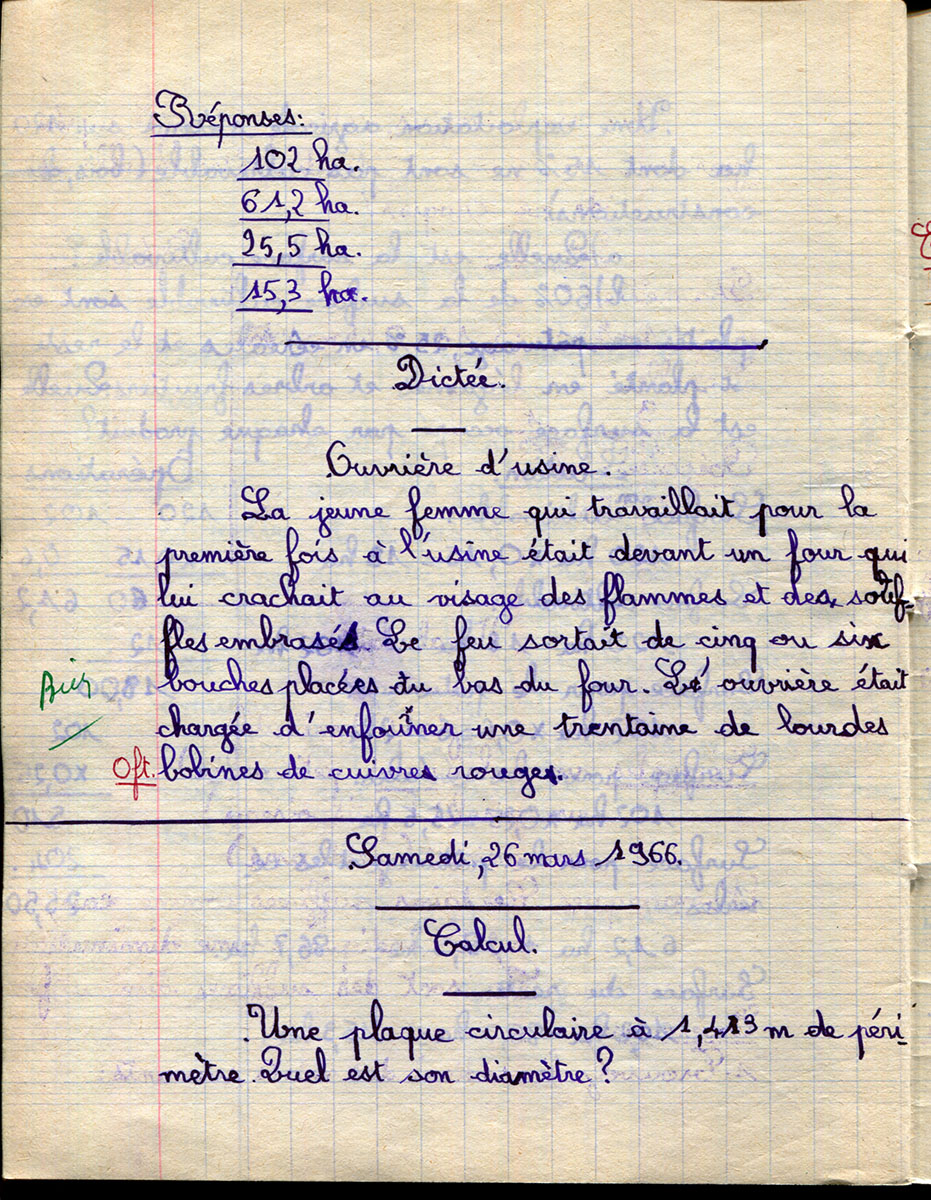 Réponses:
102 ha.
61,2 ha.
25,5 ha.
15,3 ha.
Dictée.
Ouvrière d'usine.
La jeune femme qui travaillait pour la
première fois à l'usine était devant un four qui
lui crachait au visage des flammes et des souf-
fles embrasés. Le feu sortait de cinq ou six
bouches placées au bas du four. L'ouvrière était
Bien
chargée d'enfourner une trentaine de lourdes
0ft. bobines de cuivre rouge.
Samedi, 26 mars 1966.
Calcul.
Une plaque circulaire à 1,413 m de péri-
mètre. Quel est son diamètre?